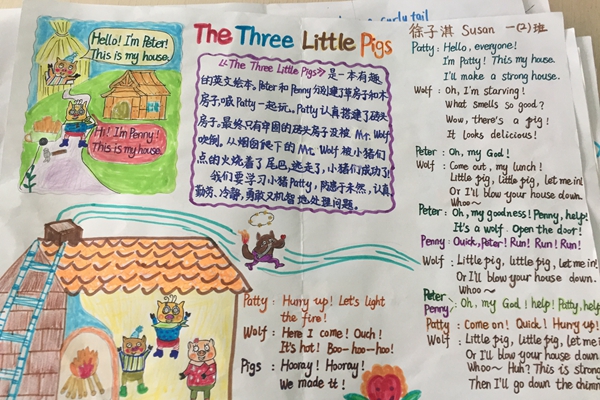 curly tail
The Three Little Pigs
徐子淇 Susan 一(2)班
Hello! I'm Peter!
This is my house.
Hi! I'm Penny!
This is my house.
《The Three Little Pigs》是一本有趣
的英文绘本。Peter和Penny分别建了草房子和木
房子,喊Patty一起玩。Patty认真搭建了砖头
房子,最终只有牢固的砖头房子没被Mr. Wolf
吹倒。从烟囱爬下的Mr. Wolf 被小猪们
点的火烧着了尾巴,逃走了,小猪们成功了!
我们要学习小猪Patty,防患于未然,认真
勤劳、冷静,勇敢又机智地处理问题。
Patty: Hello, everyone!
I'm Patty! This my house.
I'll make a strong house.
Wolf: Oh, I'm starving!
What smells so good?
Wow, there's a pig!
It looks delicious!
Peter: Oh, my God!
Wolf: Come out, my lunch!
Little pig, little pig, let me in!
Or I'll blow your house down.
Whoo~
Peter: Oh, my goodness! Penny, help!
It's a wolf. Open the door!
Penny: Quick, Peter! Run! Run! Run!
Wolf: Little pig, little pig, let me in!
Or I'll blow your house down.
Whoo~
Peter
Penny: Oh, my God! help! Patty, help
Patty: Come on! Quick! Hurry up!
Wolf: Little pig, little pig, let me in
Or I'll blow your house down
Whoo~ Huh? This is strong
Then I'll go down the chimn
Patty: Hurry up! Let's light
the fire!
Wolf: Here I come! Ouch!
It's hot! Boo-hoo-hoo!
Pigs: Hooray! Hooray!
We made it!